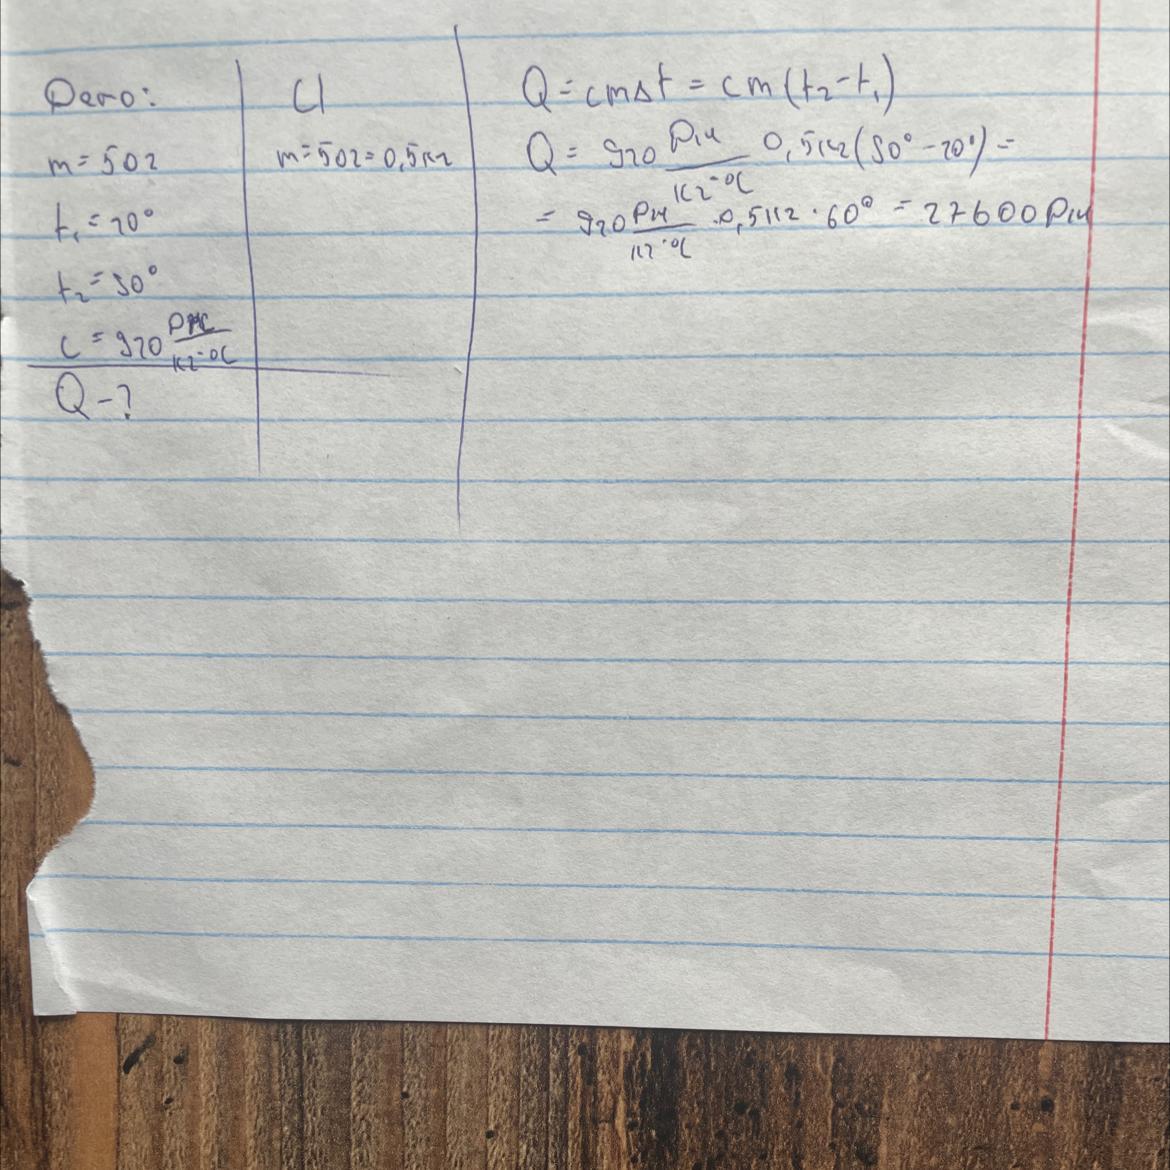 Дано:
m = 50г
t₁ = 20°
t₂ = 80°
c = 920 Дж/кг·°C
Q - ?
СИ
m = 50г = 0,5кг
Q = cmΔt = cm(t₂ - t₁)
Q = 920 Дж/кг·°C 0,5кг(80° - 20°) =
= 920 Дж/кг·°C · 0,5кг · 60° = 27600 Дж